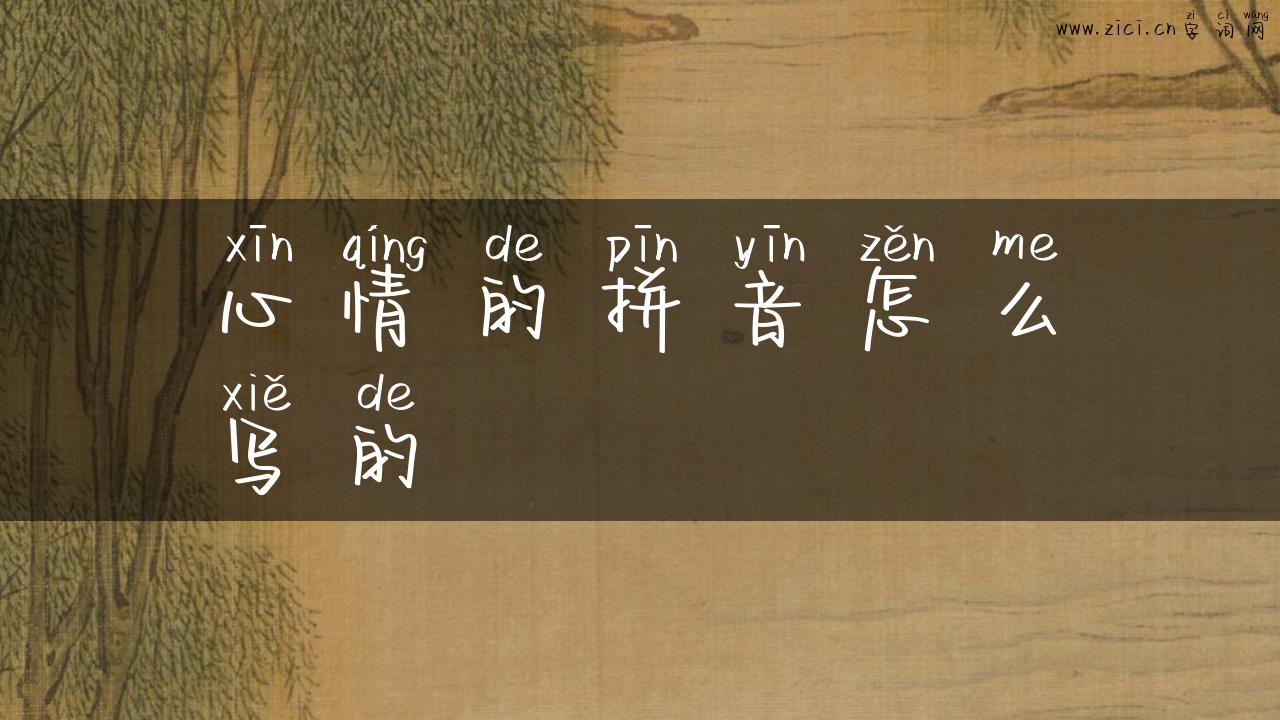 zì cí wǎng
www.zici.cn 字词网
xīn qíng de pīn yīn zěn me
心情的拼音怎么
xiě de
写的